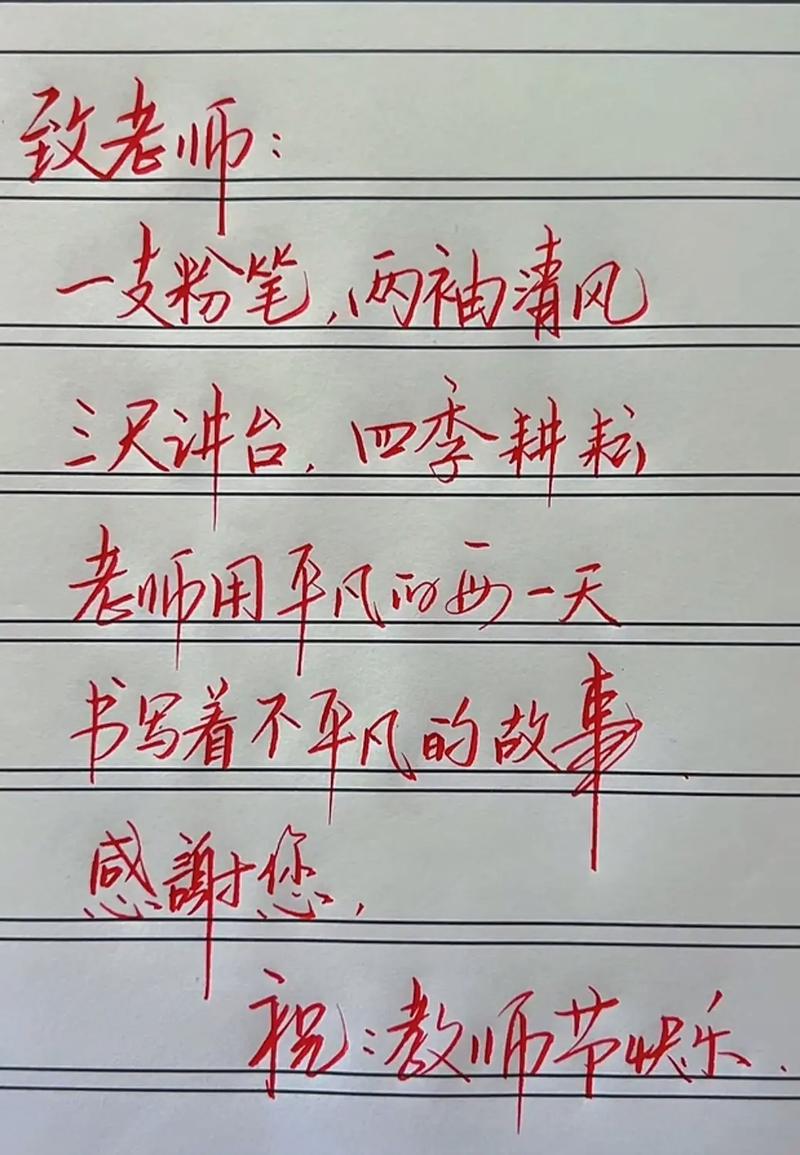 致老师：
一支粉笔，两袖清风
三尺讲台，四季耕耘
老师用平凡的每一天
书写着不平凡的故事.
感謝您，
祝：教师节快乐.